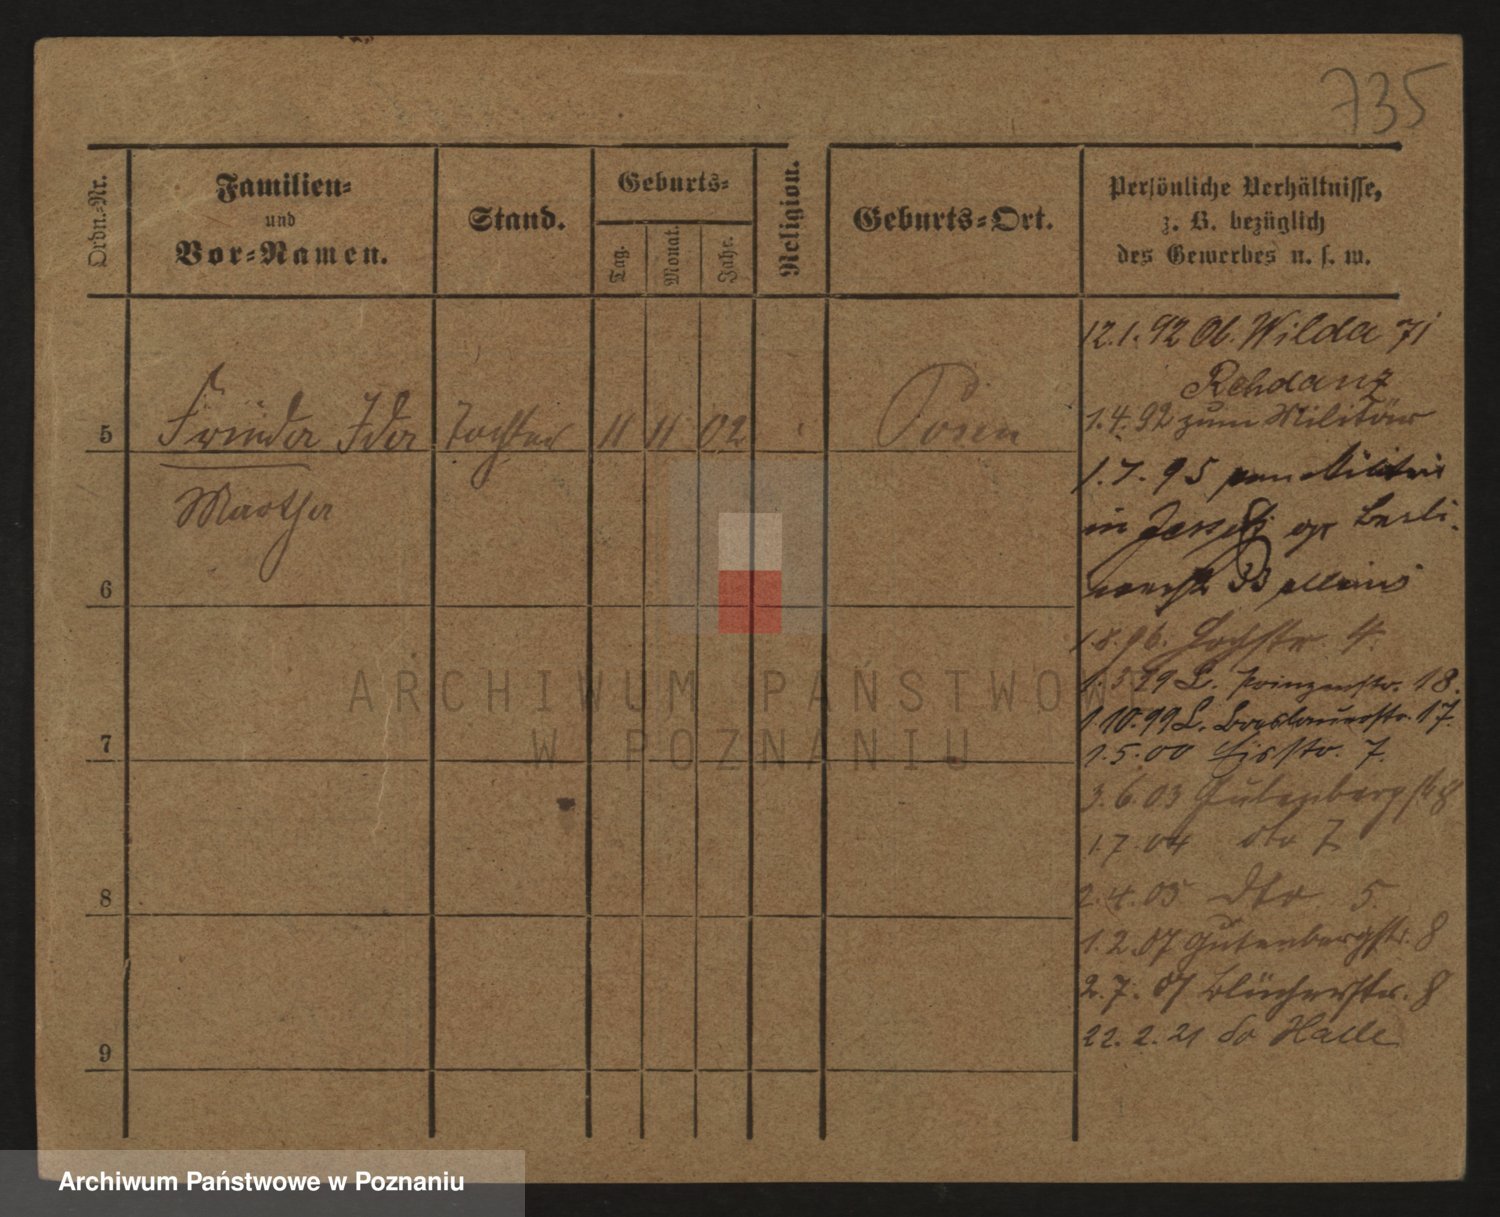 735
Ordn.-Nr.
Familien-
und
Vor-Namen.
Stand.
Geburts-
Tag.
Monat.
Jahr.
Religion.
Geburts-Ort.
Persönliche Verhältnisse,
z. B. bezüglich
des Gewerbes u. s. w.
12.1.92 Ob. Wilda 71
Rehdanz
1.4.92 zum Militär
5 Frieda Ida Tochter 11 11 02 Posen
Martha
1.7.95 vom Militär
in
6
1.8.96. 4.
L. Prinzenstr. 18.
1.10.99 L. 17.
7
1.5.00 7.
3.6.03 Gutenbergstr 8
1.7.04 dto 7
8
2.4.05 Dto 5.
1.2.07 Gutenbergstr. 8
2.7.07 Blücherstr. 8
22.2.21 Halle
9
ARCHIWUM PAŃSTWOWE
W POZNANIU
Archiwum Państwowe w Poznaniu